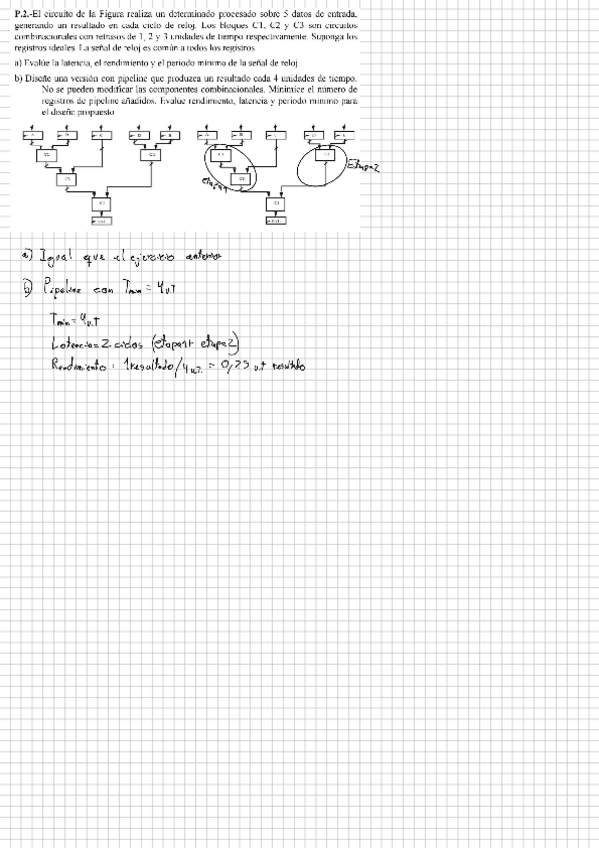 P.2.-El circuito de la Figura realiza un determinado procesado sobre 5 datos de entrada,
generando un resultado en cada ciclo de reloj. Los bloques C1, C2 y C3 son circuitos
combinacionales con retrasos de 1, 2 y 3 unidades de tiempo respectivamente. Suponga los
registros ideales. La señal de reloj es común a todos los registros
a) Evalúe la latencia, el rendimiento y el periodo mínimo de la señal de reloj
b) Diseñe una versión con pipeline que produzca un resultado cada 4 unidades de tiempo.
No se pueden modificar las componentes combinacionales. Minimice el número de
registros de pipeline añadidos. Evalue rendimiento, latencia y periodo mínimo para
el diseño propuesto
Etapa2
etapa1
a) Igual que el ejercicio anterior
b) Pipeline con Tmin = 4u.T
Tmin = 4u.T
Latencia = 2 ciclos (etapa1+ etapa2)
Rendimiento: 1 resultado/4 u.T. = 0,25 u.t resultado